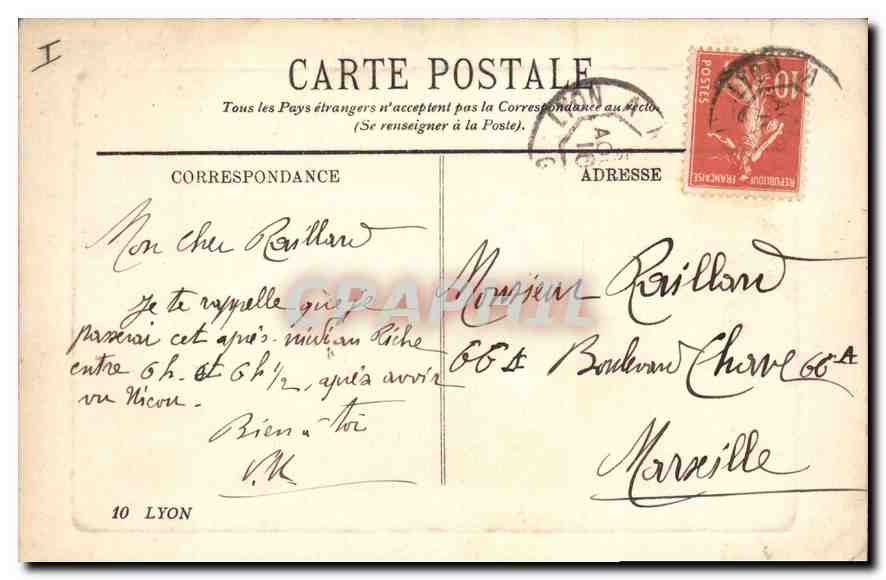 I
CARTE POSTALE
Tous les Pays étrangers n'acceptent pas la Correspondance au recto
(Se renseigner à la Poste).
CORRESPONDANCE
ADRESSE
LYON
LYON
10
POSTES
REPUBLIQUE FRANÇAISE
Mon cher Raillard
Je te rappelle que je
passerai cet après-midi au Riche
entre 6h. et 6h 1/2, après avoir
vu Nicou.
Bien à toi
Monsieur Raillard
66A Boulevard Chave 66A
Marseille
10 LYON
CPAPHIL